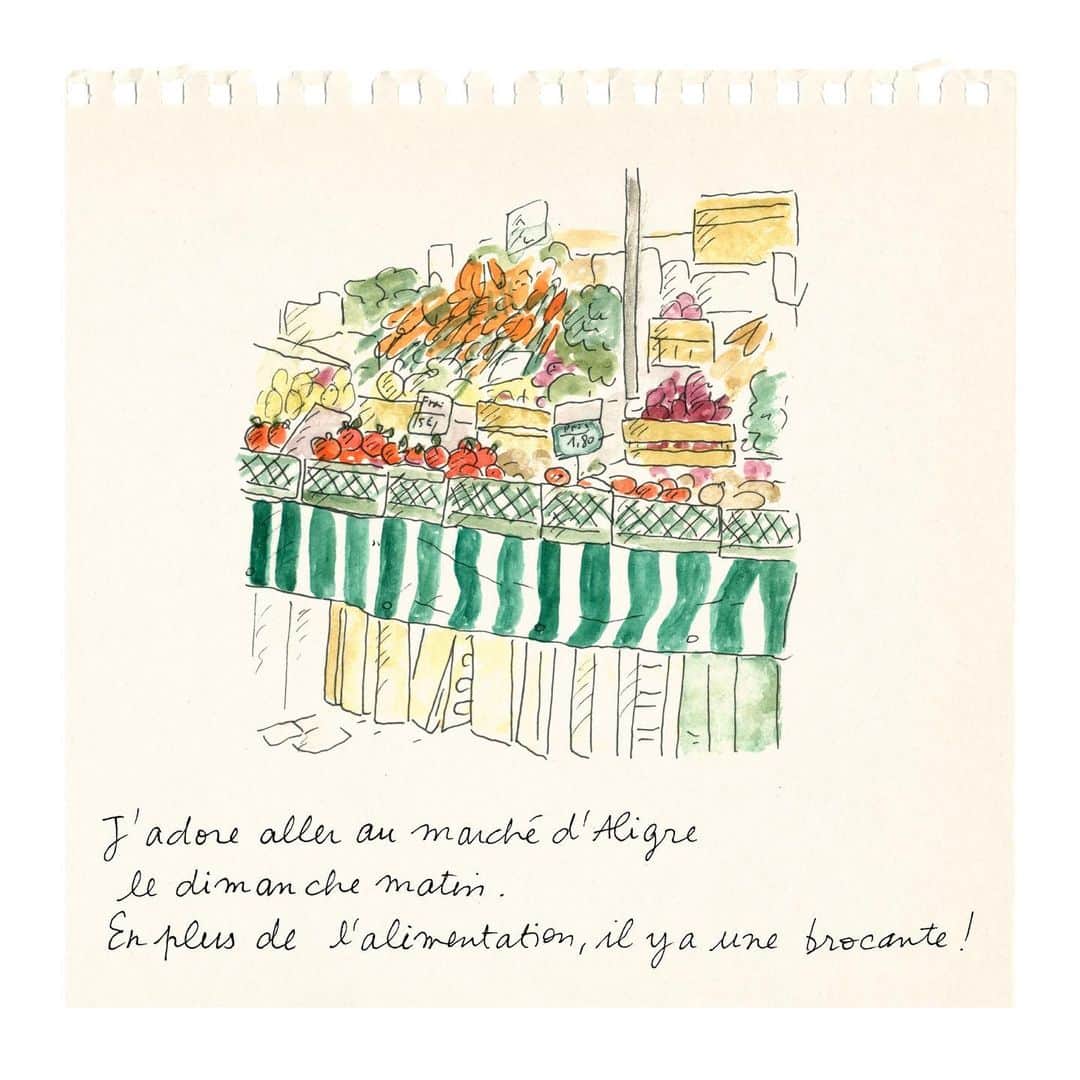 Frai
15€
Prix
1,80
J'adore aller au marché d'Aligre
le dimanche matin.
En plus de l'alimentation, il y a une brocante !